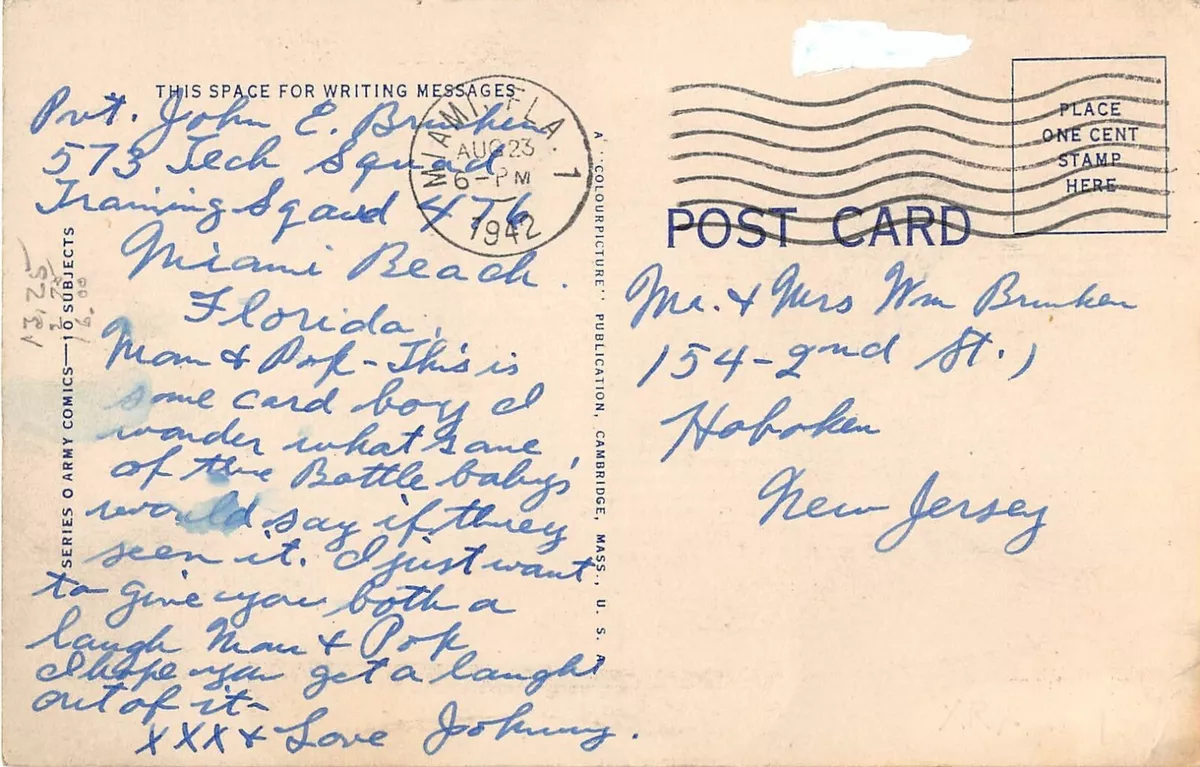 THIS SPACE FOR WRITING MESSAGES
Pvt. John E. Brunken
573 Tech Squad
Training Sqaud 476
Miami Beach.
Florida.
Mom & Pop - This is
some card boy I
wonder what some
of the Bottle baby's
would say if they
seen it. I just want
to give you both a
laugh Mom & Pop
I hope you get a laught
out of it-
XXX & Love Johnny.
MIAMI, FLA. 1
AUG 23
6-PM
1942
SERIES O ARMY COMICS—10 SUBJECTS
13.25
2.75
16.00
A "COLOURPICTURE" PUBLICATION, CAMBRIDGE, MASS., U. S. A.
PLACE
ONE CENT
STAMP
HERE
POST CARD
Mr. & Mrs Wm Brunken
154-2nd St.,
Hoboken
New Jersey